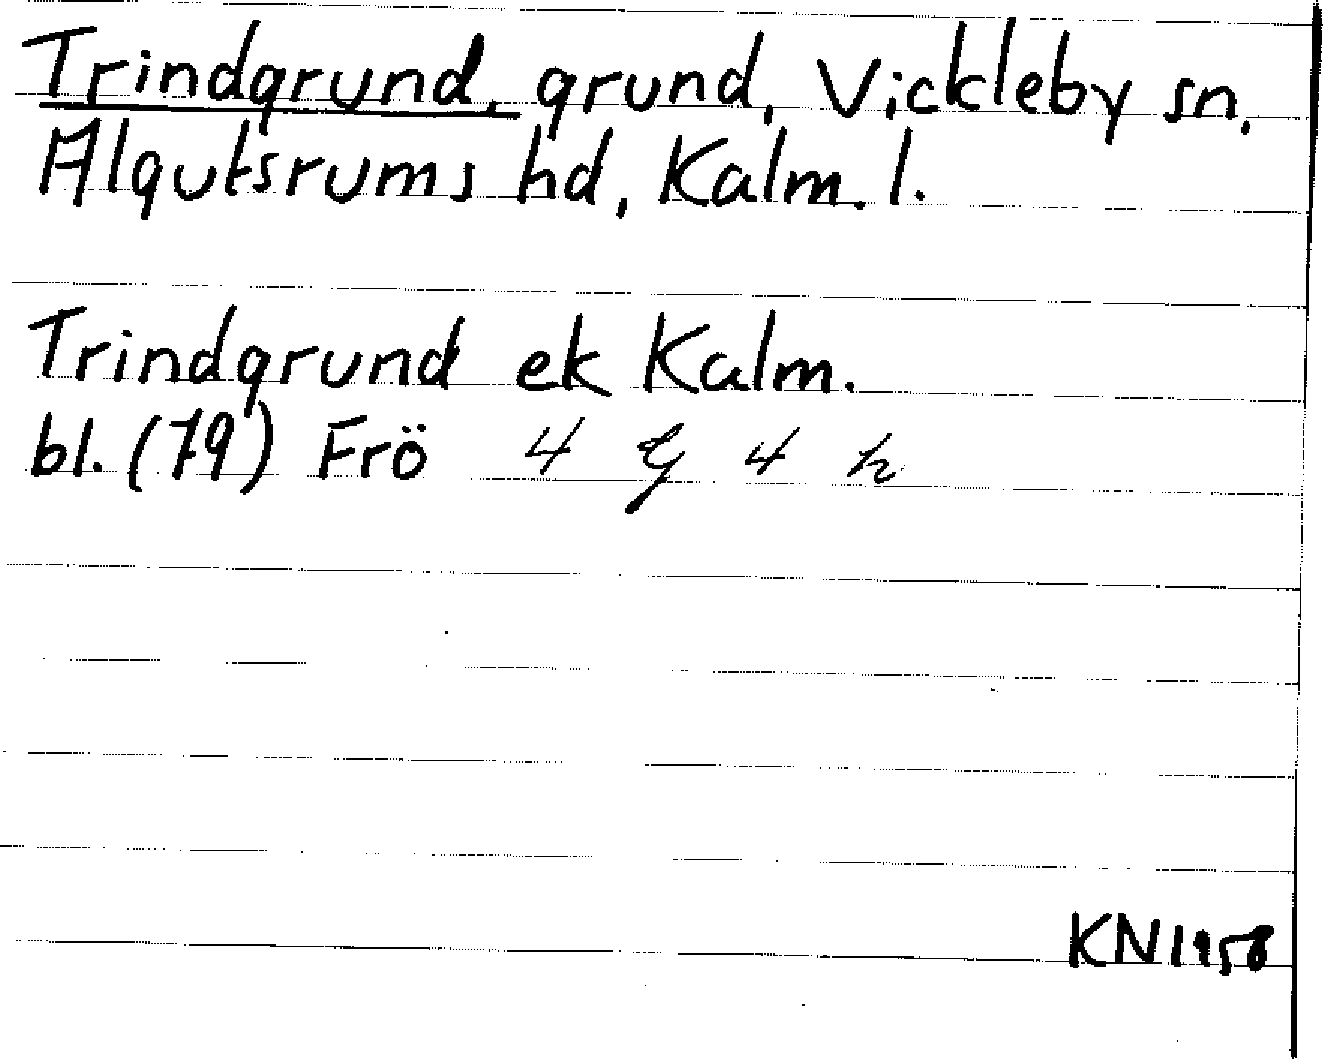 Trindgrund, grund, Vickleby sn,
Algutsrums hd, Kalm. l.
Trindgrund ek Kalm.
bl. (79) Frö 4 g 4 h
KN 1958